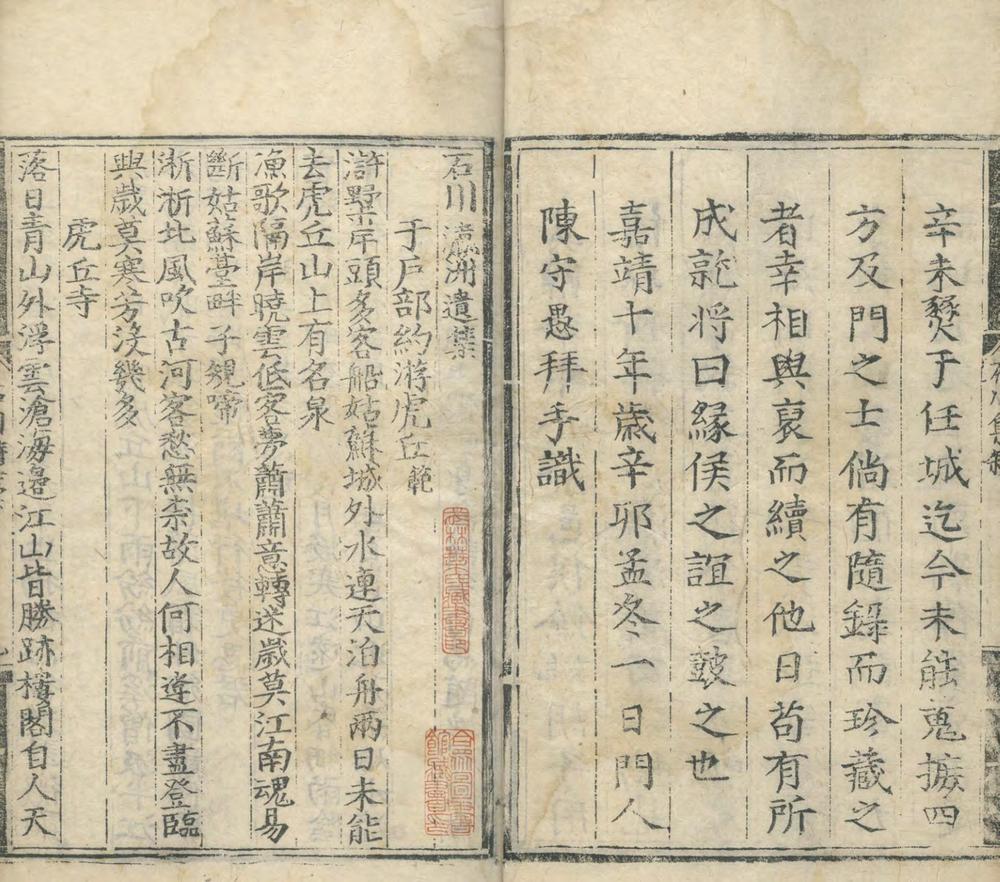 辛未燹于任城迄今未能蒐摭四
方及門之士倘有隨錄而珍藏之
者幸相與裒而續之他日苟有所
成就將曰緣侯之誼之鼓之也
嘉靖十年歲辛卯孟冬一日門人
陳守愚拜手識
石川瀛洲遺集
于戶部約游虎丘
滸墅岸頭多客船姑蘇城外水連天泊舟兩日未能
去虎丘山上有名泉
漁歌隔岸曉雲低客夢蕭蕭意轉迷歲莫江南魂易
斷姑蘇臺畔子規啼
淅淅北風吹古河客愁無柰故人何相逢不盡登臨
興歲莫寒芳沒幾多
虎丘寺
落日青山外浮雲滄海邊江山皆勝跡樓閣自人天